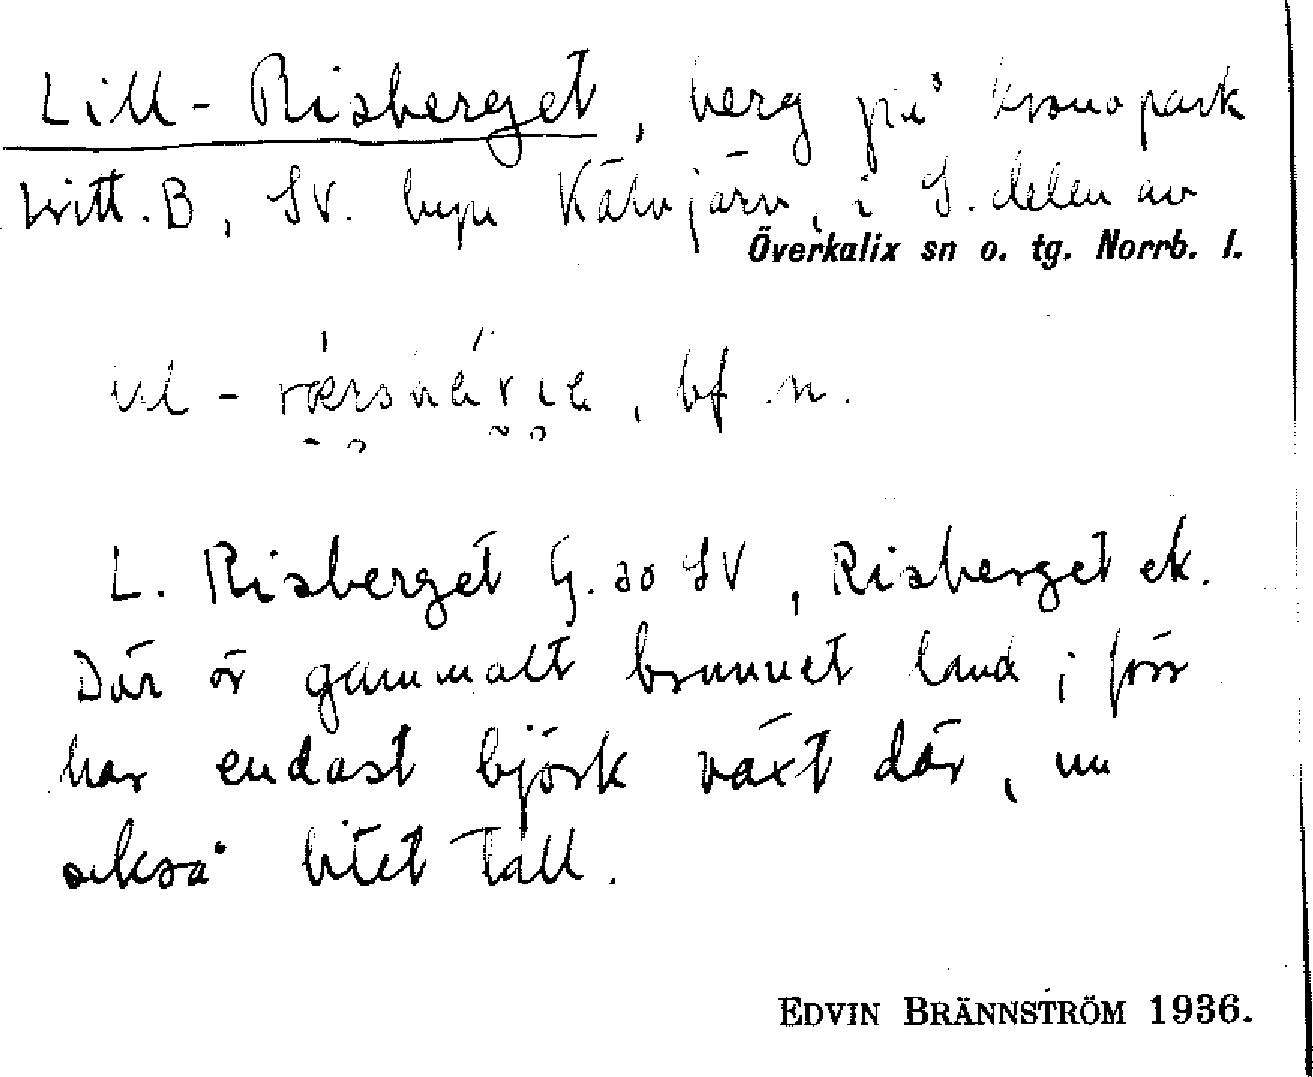 Lill-Risberget, berg på kronopark
Britt. B, SV. byn Kälvjärv, i S. delen av
Överkalix sn o. tg. Norrb. l.
bf. n.
L. Risberget G. 30 SV, Risberget ek.
Där är gammalt brunnet land; förr
har endast björk växt där, nu
också litet tall.
EDVIN BRÄNNSTRÖM 1936.